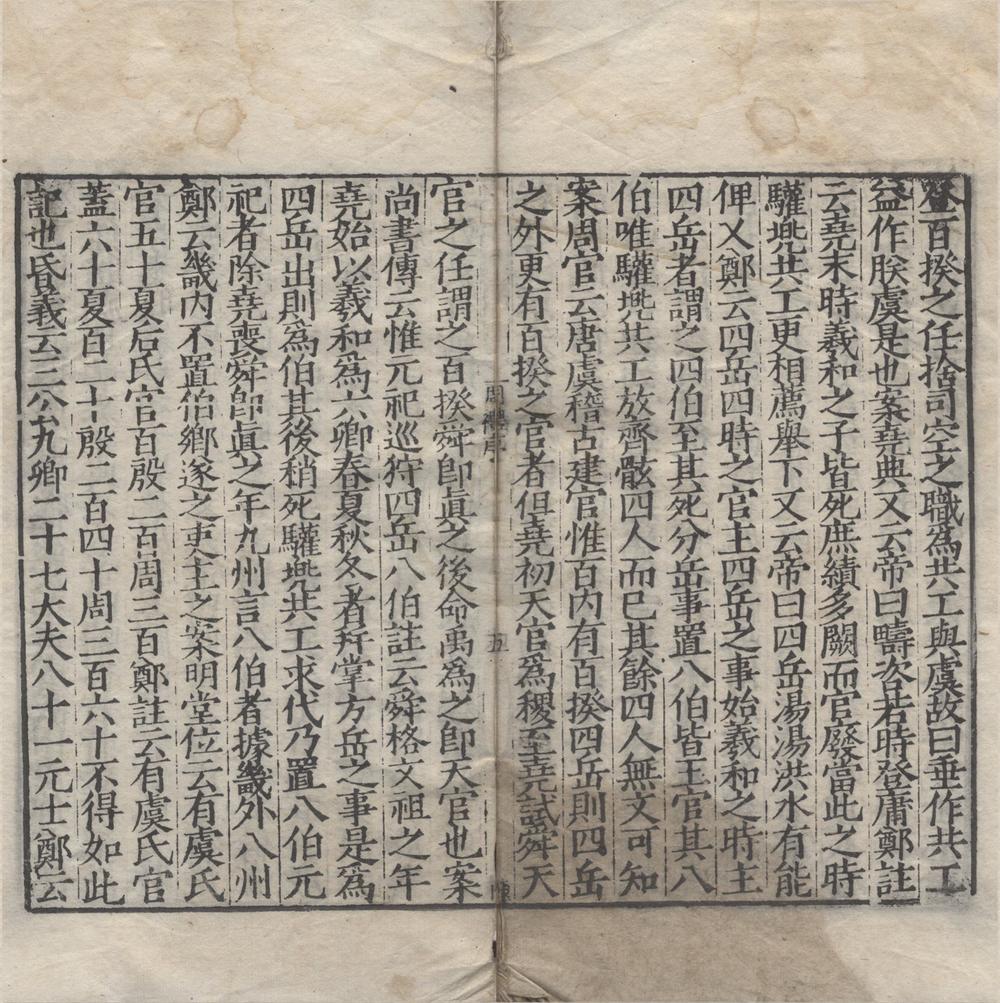 登百揆之任捨司空之職為共工與虞故曰垂作共工
益作朕虞是也案堯典又云帝曰疇咨若時登庸鄭註
云堯末時羲和之子皆死庶績多闕而官廢當此之時
驩兠共工更相薦舉下又云帝曰四岳湯湯洪水有能
俾乂鄭云四岳四時之官主四岳之事始羲和之時主
四岳者謂之四伯至其死分岳事置八伯皆王官其八
伯唯驩兠共工放齊鮌四人而已其餘四人無文可知
案周官云唐虞稽古建官惟百内有百揆四岳則四岳
之外更有百揆之官者但堯初天官為稷至堯試舜天
周禮序
五
官之任謂之百揆舜即眞之後命禹為之即天官也案
尚書傳云惟元祀巡狩四岳八伯註云舜格文祖之年
堯始以羲和為六卿春夏秋冬者并掌方岳之事是為
四岳出則為伯其後稍死驩兠共工求代乃置八伯元
祀者除堯喪舜即眞之年九州言八伯者據畿外八州
鄭云畿内不置伯鄉遂之吏主之案明堂位云有虞氏
官五十夏后氏官百殷二百周三百鄭註云有虞氏官
蓋六十夏百二十殷二百四十周三百六十不得如此
記也昏義云三公九卿二十七大夫八十一元士鄭云